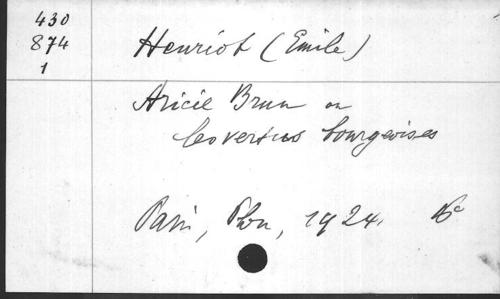 430
874
1
Henriot (Emile)
Aricie Brun ou
les vertus bourgeoises
Paris, Plon, 1924. 16°